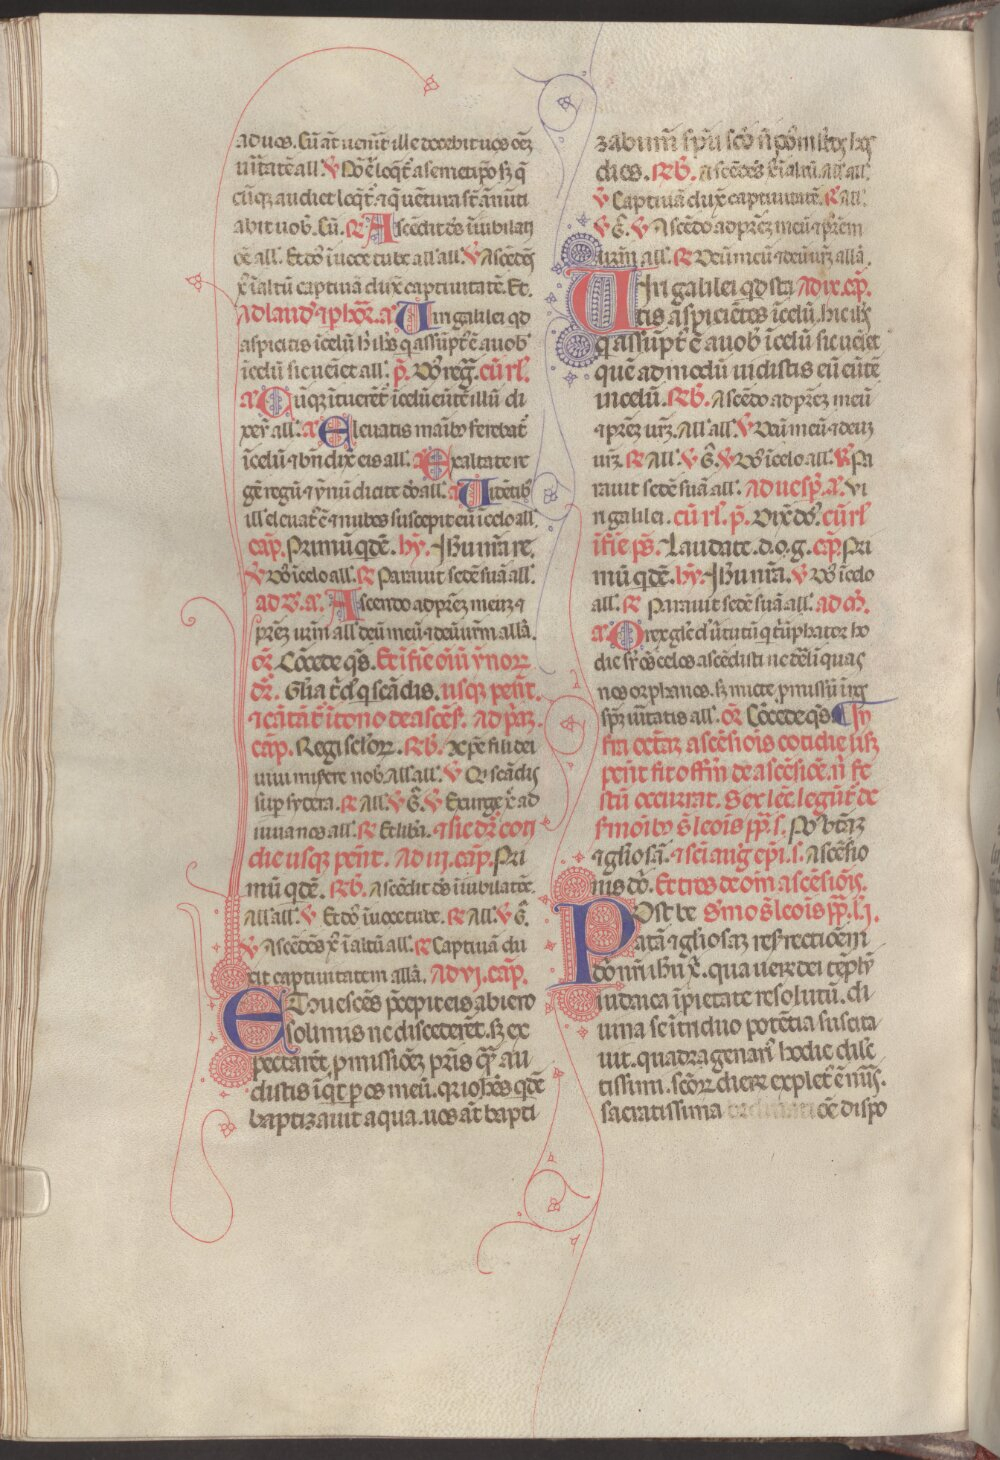 ad uos. Cū āt uen̄it ille docebit uos oēz
uītatē all. ℣ Nō .ē. loqt̄ a semetipo sz q̄
cūqz audiet loqt̄. ⁊ q̄ uētura st̄ ānūti
abit uob̄. Cū. ℟ Ascēdit dō īiubilati
oē all. Et dō īuoce tube all all. ℣ Ascēdēs
x̄ īaltū captiuā dux̄ captiuitatē. Et.
Ad laud̄. ⁊ p hōr. a. Uiri galilei qd̄
aspicitis īcelū hic ih̄s q̄ assūpt̄ ē auob̄
īcelū sic ueiet all. p̄. Dō reḡ. cū rl̄.
a. Cūqz ītuerēt̄ īcelū eūtē illū di
xer̄ all. a. Eleuatis maībs ferebat̄
īcelū ⁊ bn̄dix̄ eis all. a. Exaltate re
gē regū ⁊ ȳnū dicite dō all. a. Uidētib̄
ill̄ eleuat̄ ē ⁊ nubes suscepit eū īcelo all.
cap̄. Primū qdē. hȳ. Ihū nr̄a re.
℣ Dō īcelo all. ℟ Parauit sedē suā all.
ad B̄. a. Ascendo ad prēz meuz ⁊
prēz urm̄ all. deū meū ⁊ deū urm̄ allā.
or̄. Cōcede qs̄. Et ī fie oīū ȳnorz
dr̄. Gl̄ia t̄ d̄ q scādis. usqz pent̄.
⁊ cātāt̄ ī tono de ascēs̄. Ad p̄az.
cap̄. Regi sclorz. Rb̄. Xp̄e fili dei
uiui misere nob̄. All all. ℣ Qi scādis
sup sydera. ℟ All. ℣ Ḡ. ℣ Exurge x̄ ad
iuua nos all. ℟ Et lib̄a. ⁊ sic dr̄ coti
die usqz pent̄. Ad iii. cap̄. Pri
mū qdē. Rb̄. Ascēdit dō īiubilatiē.
All all. ℣ Et dō īuoce tube. ℟ All. ℣ Ḡ.
℣ Ascēdēs x̄ īaltū all. ℟ Captiuā du
xit captiuitatem allā. Ad vi. cap̄.
ET cōuescēs p̄cepit eis ab iero
solimis ne discederēt. sz ex
pectarēt p̄missiōez pr̄is quā au
distis īqt̄ p os meū. qr iohēs qdē
baptizauit aqua. uos āt bapti
zabimī spū scō nō p̄ multos hos
dies. Rb̄. Ascēdēs x̄ īaltū. All all.
℣ Captiuā dux̄ captiuitatē. ℟ All.
℣ Ḡ. ℣ Ascēdo ad prēz meū ⁊ prēm
urm̄ all. ℟ Deū meū ⁊ deū urz allā.
Uiri galilei qd sta Ad ix. cap̄.
tis aspiciētes īcelū. hic ih̄s
q assūpt̄ ē auob̄ īcelū sic ueiet
quē admodū uidistis eū eūtē
in celū. Rb̄. Ascēdo ad prēz meū
⁊ prēz urz. All all. ℣ Deū meū ⁊ deuz
urz. ℟ All. ℣ Ḡ. ℣ Dō īcelo all. ℟ Pa
rauit sedē suā all. Ad uesp̄. a. Vi
ri galilei. cū rl̄. p̄. Dix̄ dō. cū rl̄
ī fie ps̄. Laudate. d. o. g. cap̄. Pri
mū qdē. hȳ. Ihū nr̄a. ℣ Dō īcelo
all. ℟ Parauit sedē suā all. ad M̄.
a. O rex glē dn̄ uirtutū q t̄ūphator ho
die sr̄ oēs celos ascēdisti ne dēliquas
nos orphanos. sz mitte p̄missū ī nos
spm̄ uītatis all. or̄. Cōcede qs̄. In
fra octaz ascēsiois cotidie usqz
pent̄ fit offm̄ de ascēsioē. n̄ fe
stū occurrat. Sex lēc. legūt̄ de
s̄moībs s̄ leois pp̄. s. Po btāz
⁊ gliosā. ⁊ sc̄i auḡ ep̄i. s. Ascēsio
nis dō. Et tres de om̄ ascēsiois.
POst be S̄mo s̄ leois pp̄. l. i.
atā ⁊ gliosaz resrectiōem
dō nri ih̄u x̄. qua uere dei tēplū
iudaica īpietate resolutū. di
uina se ītriduo potētia suscita
uit. quadragenari hodie dile
tissimi. scōrz dierz explet̄ ē nus̄.
sacratissima ordinatiōe dispo